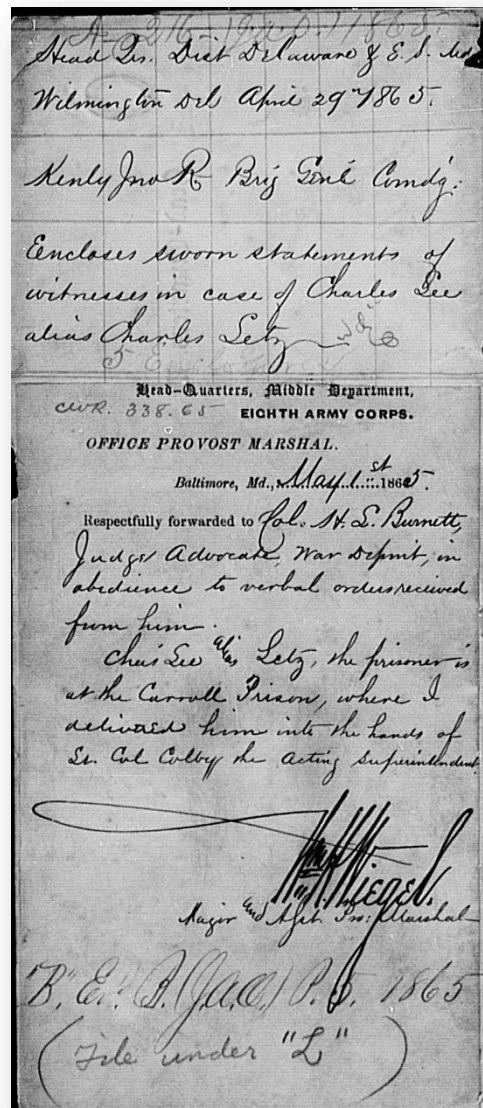 Head Qrs. Dist Delaware & E. S. Md.
Wilmington Del April 29th 1865.
Kenly Jno R Brig Genl Comdg.
Encloses sworn statements of
witnesses in case of Charles Lee
alias Charles Letz
Head-Quarters, Middle Department,
CWR. 338. 65 EIGHTH ARMY CORPS.
OFFICE PROVOST MARSHAL.
Baltimore, Md., May 1st 1865.
Respectfully forwarded to Col. H. L. Burnett,
Judge Advocate, War Depmt, in
obedience to verbal orders received
from him.
Chas Lee alias Letz, the prisoner is
at the Carroll Prison, where I
delivered him into the hands of
Lt. Col Colby the Acting Superintendent.
Wm H Wiegel.
Major and Asst. Pro: Marshal
"B" E. B. (J.A.O.) P. 5. 1865
(File under "L")